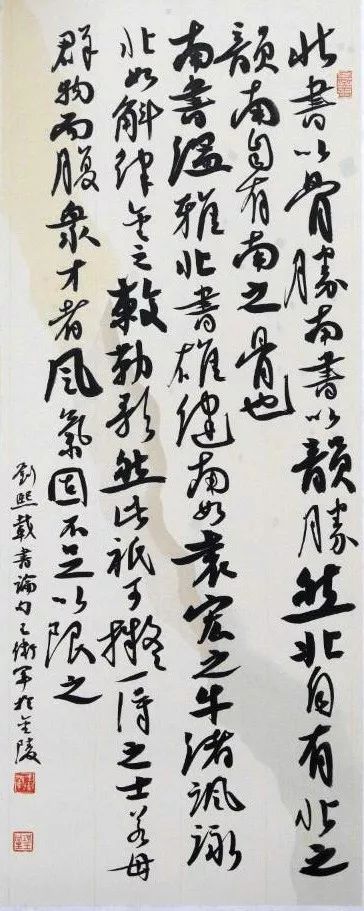 北書以骨勝南書以韻勝然北自有北之
韻南自有南之骨也
南書溫雅北書雄健南如袁宏之牛渚諷詠
北如斛律金之敕勒歌然此祇可擬一得之士若母
群物而腹衆才者風氣固不足以限之
劉熙載書論句 衛軍於金陵